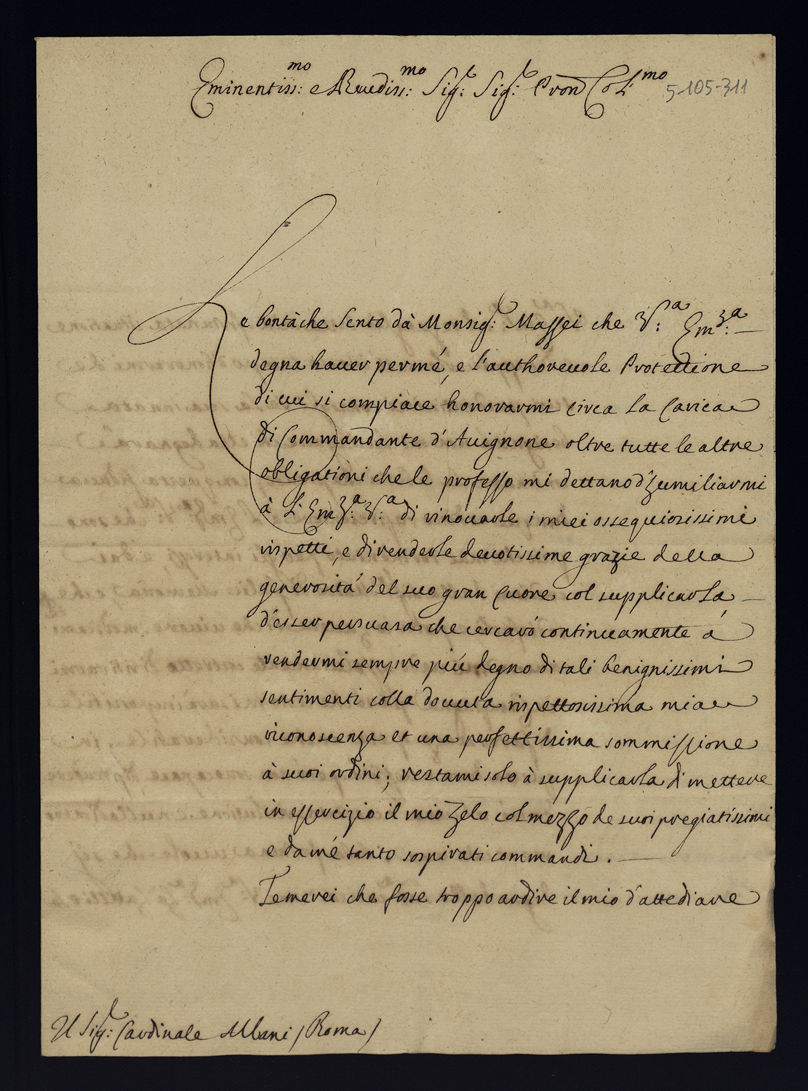 Eminentiss:mo e Reverdiss:mo Sig:r Sig:r Pron Col:mo
5-105-311
Le bontà che sento dà Monsig:r Massei che V:a Em:za
degna haver per mé, e l'authorevole Protettione
di cui si compiace honorarmi circa la Carica
di Commandante d'Avignone oltre tutte le altre
obligationi che le professo mi dettano d'humiliarmi
à l'Em:za V:a di rinovarle i miei ossequiosissimi
rispetti, e di renderle devotissime grazie della
generosità del suo gran Cuore col supplicarla
d'esser persuasa che cercarò continuamente à
rendermi sempre più degno di tali benignissimi
sentimenti colla dovuta rispettosissima mia
riconoscenza et una perfettissima sommissione
à suoi ordini; restami solo à supplicarla di mettere
in essercizio il mio Zelo col mezzo de suoi pregiatissimi
e da mé tanto sospirati commandi.
Temerei che fosse troppo ardire il mio d'attediare
Il Sig:r Cardinale Albani (Roma)